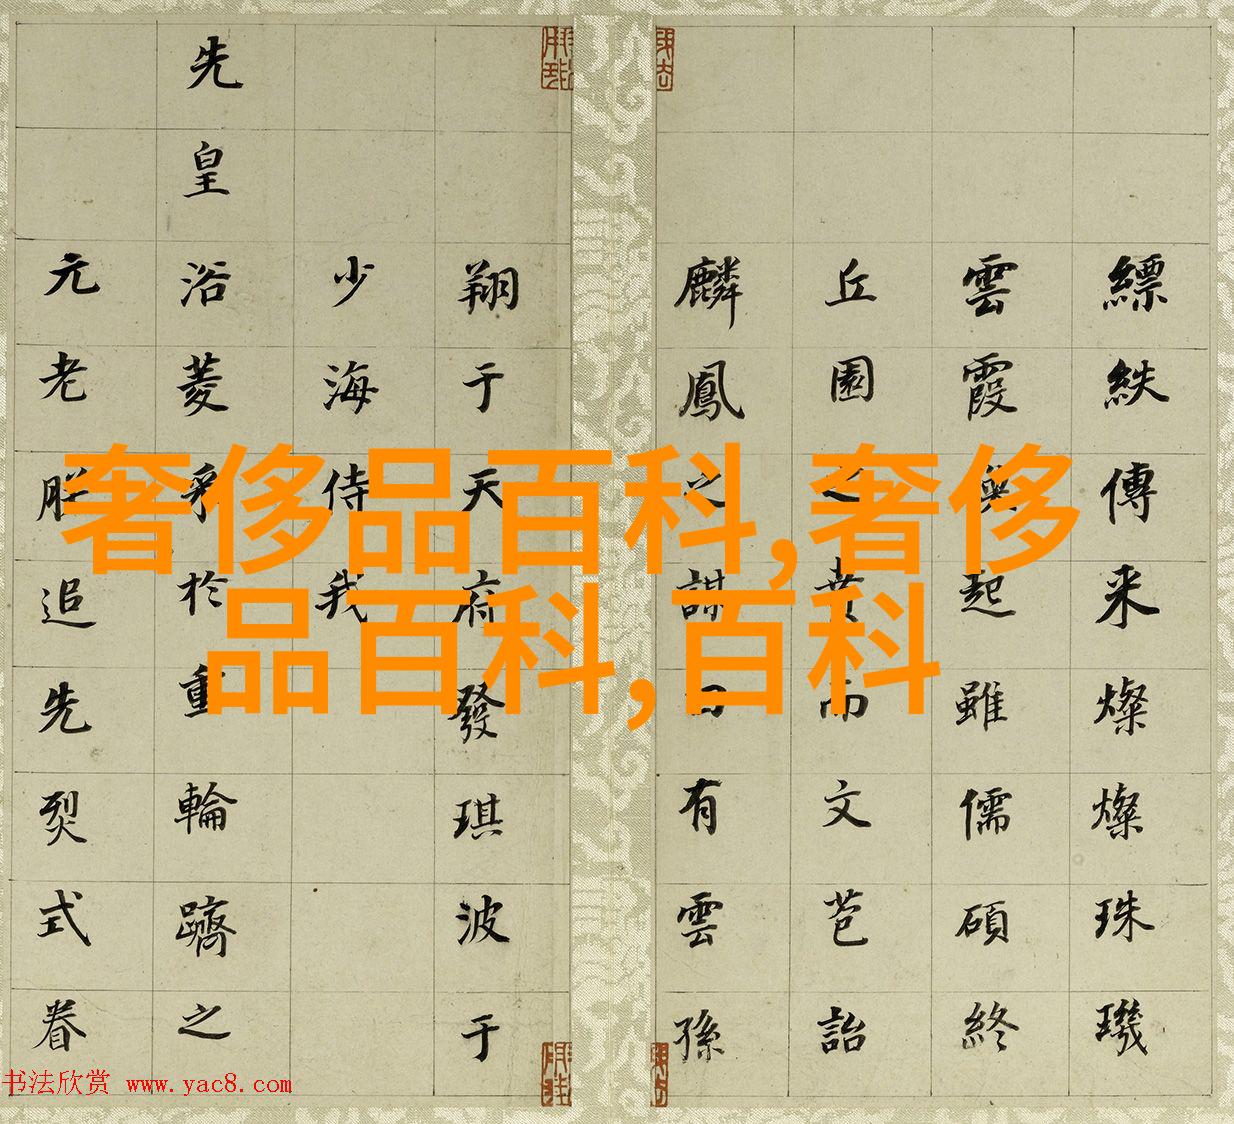 縹紩傳来燦燦珠璣
雲霞起雖儒碩終
丘園之賁而文苞詒
麟鳳之謀有雲孫
翔于天府發琪波于
少海侍我
先皇浴菱於重輪躋之
元老追先烈式眷
奢侈品百科,奢侈
品百科,百科
书法欣赏 www.yac8.com